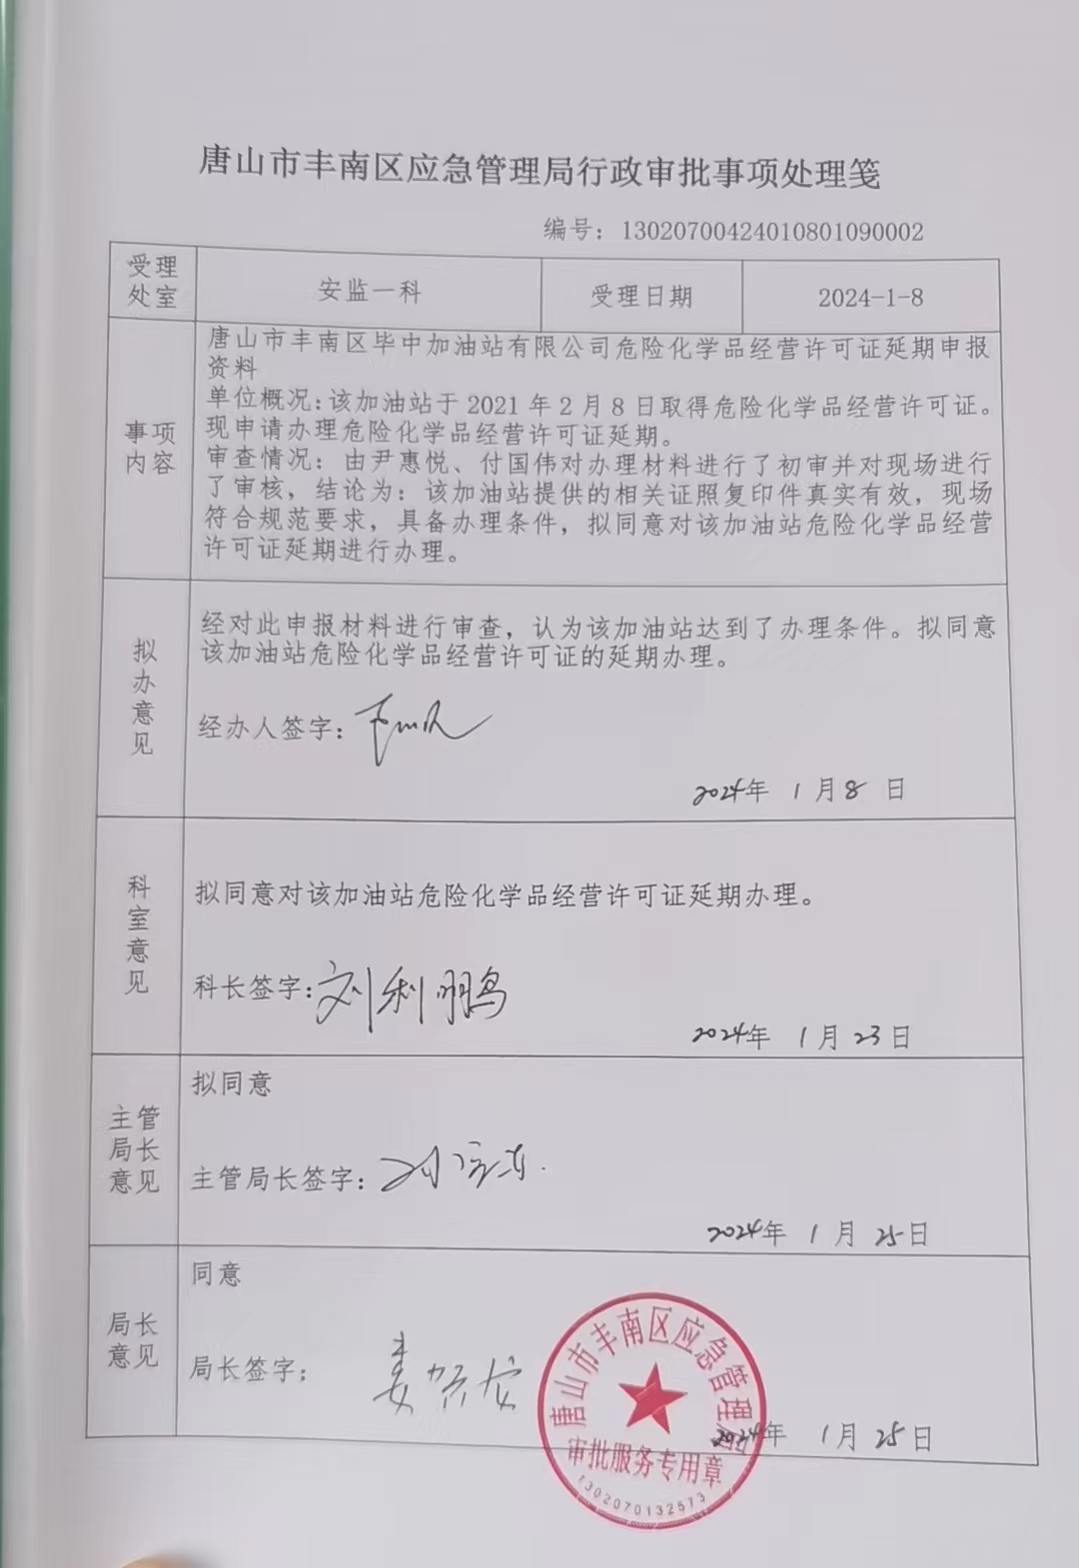 唐山市丰南区应急管理局行政审批事项处理笺
编号：13020700424010801090002
受理
处室
安监一科
受理日期
2024-1-8
事项
内容
唐山市丰南区毕中加油站有限公司危险化学品经营许可证延期申报
资料
单位概况：该加油站于 2021 年 2 月 8 日取得危险化学品经营许可证。
现申请办理危险化学品经营许可证延期。
审查情况：由尹惠悦、付国伟对办理材料进行了初审并对现场进行
了审核，结论为：该加油站提供的相关证照复印件真实有效，现场
符合规范要求，具备办理条件，拟同意对该加油站危险化学品经营
许可证延期进行办理。
拟
办
意
见
经对此申报材料进行审查，认为该加油站达到了办理条件。拟同意
该加油站危险化学品经营许可证的延期办理。
经办人签字：
2024年 1月8 日
科
室
意
见
拟同意对该加油站危险化学品经营许可证延期办理。
科长签字：刘利鹏
2024年 1月 23日
主管
局长
意见
拟同意
主管局长签字：
2024年 1月 25日
局长
意见
同意
局长签字：
2024年 1月 25日
唐山市丰南区应急管理局
审批服务专用章
1302070132573